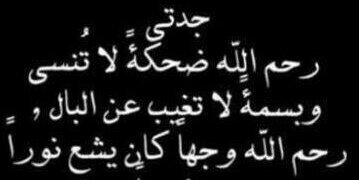 جدتي
رحم الله ضحكةً لا تُنسى
وبسمةً لا تغيب عن البال ,
رحم الله وجهاً كان يشع نوراً